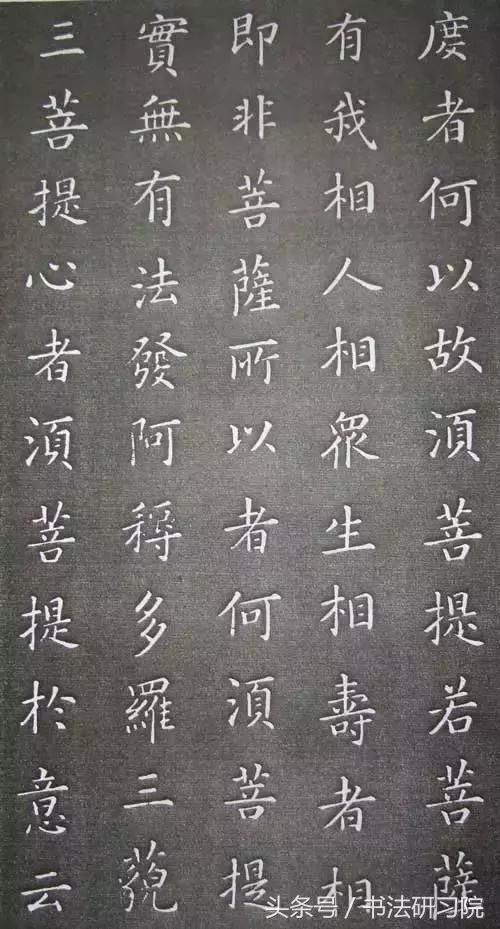 度者何以故須菩提若菩薩
有我相人相衆生相壽者相
即非菩薩所以者何須菩提
實無有法發阿耨多羅三藐
三菩提心者須菩提於意云
头条号／书法研习院